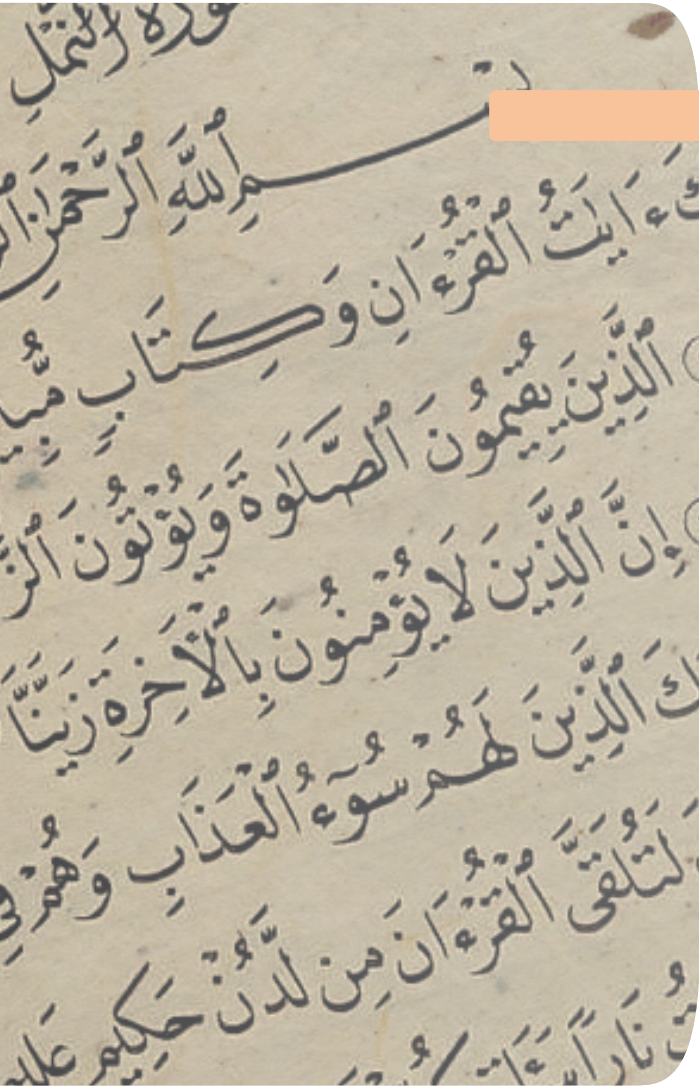 سُورَةُ النَّمْلِ
بِسْمِ ٱللَّهِ ٱلرَّحْمَٰنِ
ءَايَٰتُ ٱلْقُرْءَانِ وَكِتَابٍ
ٱلَّذِينَ يُقِيمُونَ ٱلصَّلَوٰةَ وَيُؤْتُونَ
إِنَّ ٱلَّذِينَ لَا يُؤْمِنُونَ بِٱلْأَخِرَةِ زَيَّنَّا
ٱلَّذِينَ لَهُمْ سُوٓءُ ٱلْعَذَابِ وَهُمْ فِي
لَتُلَقَّى ٱلْقُرْءَانَ مِن لَّدُنْ حَكِيمٍ
نَارًا